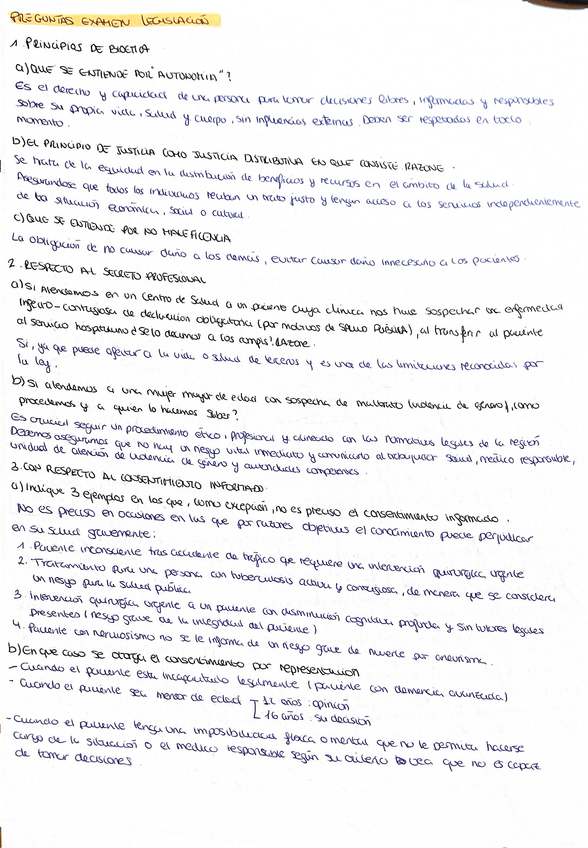 PREGUNTAS EXAMEN LEGISLACIÓN
1. PRINCIPIOS DE BIOETICA
a) QUE SE ENTIENDE POR "AUTONOMIA"?
Es el derecho y capacidad de una persona para tomar decisiones libres, informadas y responsables
sobre su propia vida, salud y cuerpo, sin influencias externas. Deben ser respetadas en todo
momento.
b) EL PRINCIPIO DE JUSTICIA COMO JUSTICIA DISTRIBUTIVA EN QUE CONSISTE. RAZONE.
Se trata de la equidad en la distribución de beneficios y recursos en el ámbito de la salud.
Asegurandose que todos los individuos reciban un trato justo y tengan acceso a los servicios independientemente
de la situación económica, social o cultural.
c) QUE SE ENTIENDE POR NO MALEFICENCIA
La obligación de no causar daño a los demás, evitar causar daño innecesario a los pacientes.
2. RESPECTO AL SECRETO PROFESIONAL
a) Si atendemos en un Centro de Salud a un paciente cuya clínica nos hace sospechar una enfermedad
infecto-contagiosa de declaración obligatoria (por motivos de SALUD PÚBLICA), al transferir al paciente
al servicio hospitalario ¿se lo decimos a los compis? Razone.
Si, ya que puede afectar a la vida o salud de terceros y es una de las limitaciones reconocidas por
la ley.
b) Si atendemos a una mujer mayor de edad con sospecha de maltrato (violencia de género), como
procedemos y a quien lo hacemos saber?
Es crucial seguir un procedimiento ético, profesional y alineado con las normativas legales de la región
Debemos asegurarnos que no hay un riesgo vital inmediato y comunicarlo al trabajador social, médico responsable,
unidad de atención de violencia de género y autoridades competentes.
3. CON RESPECTO AL CONSENTIMIENTO INFORMADO
a) Indique 3 ejemplos en los que, como excepción, no es preciso el consentimiento informado.
No es preciso en ocasiones en las que por razones objetivas el conocimiento puede perjudicar
en su salud gravemente:
1. Paciente inconsciente tras accidente de tráfico que requiere una intervención quirúrgica urgente
2. Tratamiento para una persona con tuberculosis activa y contagiosa, de manera que se considera
un riesgo para la salud pública
3. Intervención quirúrgica urgente a un paciente con disminución cognitiva profunda y sin tutores legales
presentes (riesgo grave de la integridad del paciente)
4. Paciente con nerviosismo no se le informa de un riesgo grave de muerte por aneurisma.
b) En que caso se otorga el consentimiento por representación
- Cuando el paciente esta incapacitado legalmente (paciente con demencia avanzada)
- Cuando el paciente sea menor de edad 12 años: opinión
16 años: su decisión
- Cuando el paciente tenga una imposibilidad física o mental que no le permita hacerse
cargo de la situación o el médico responsable según su criterio vea que no es capaz
de tomar decisiones.